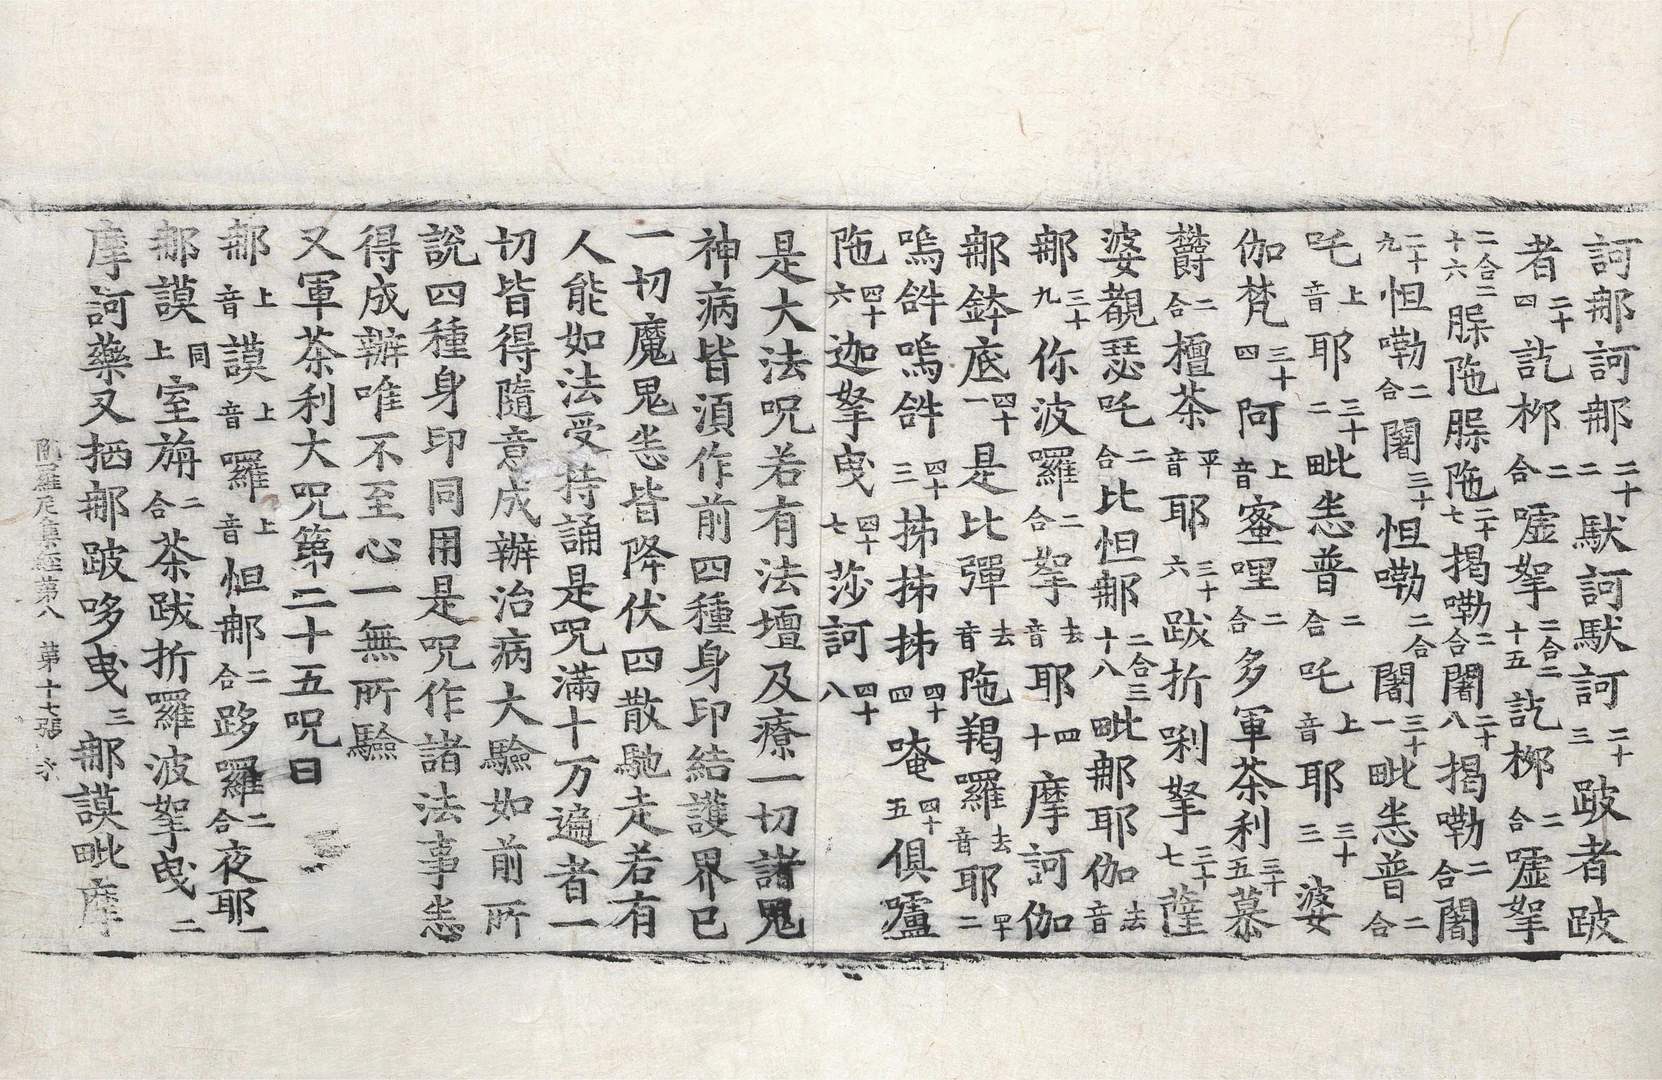 訶那訶那二十二馱訶馱訶二十三跛者跛
者二十四訖桞二合嘘拏二合二十五訖桞二合嘘拏
二合二十六𦛨陁𦛨陁二十七揭嘞二合闍二十八揭嘞二合闍
二十九怛嘞二合闍三十怛嘞二合闍三十一毗恙普二合
吒上音耶三十二毗恙普二合吒上音耶三十三婆
伽梵三十四阿上音蜜哩二合多軍荼利三十五慕
欝二合檀荼平音耶三十六跋折唎拏三十七薩
婆覩瑟吒二合比怛那二合三十八毗那耶伽去音
那三十九你波囉二合拏去音耶四十摩訶伽
那鉢底四十一是比彈去音陁羯羅去音耶四十二
嗚𤙖嗚𤙖四十三抹抹抹四十四唵四十五俱嚧
陁四十六迦拏曳四十七莎訶四十八
是大法呪若有法壇及療一切諸鬼
神病皆湏作前四種身印結護界已
一切魔鬼恙皆降伏四散馳走若有
人能如法受持誦是呪滿十万遍者一
切皆得隨意成辦治病大驗如前所
說四種身印同用是呪作諸法事恙
得成辦唯不至心一無所驗
又軍荼利大呪第二十五呪曰
那上音謨上音囉上音怛那二合跢羅二合夜耶一
那謨同上室旃二合荼跋折羅波拏曳二
摩訶藥叉栖那跛哆曳三那謨毗摩
陁羅尼集經第八 第十七張 染